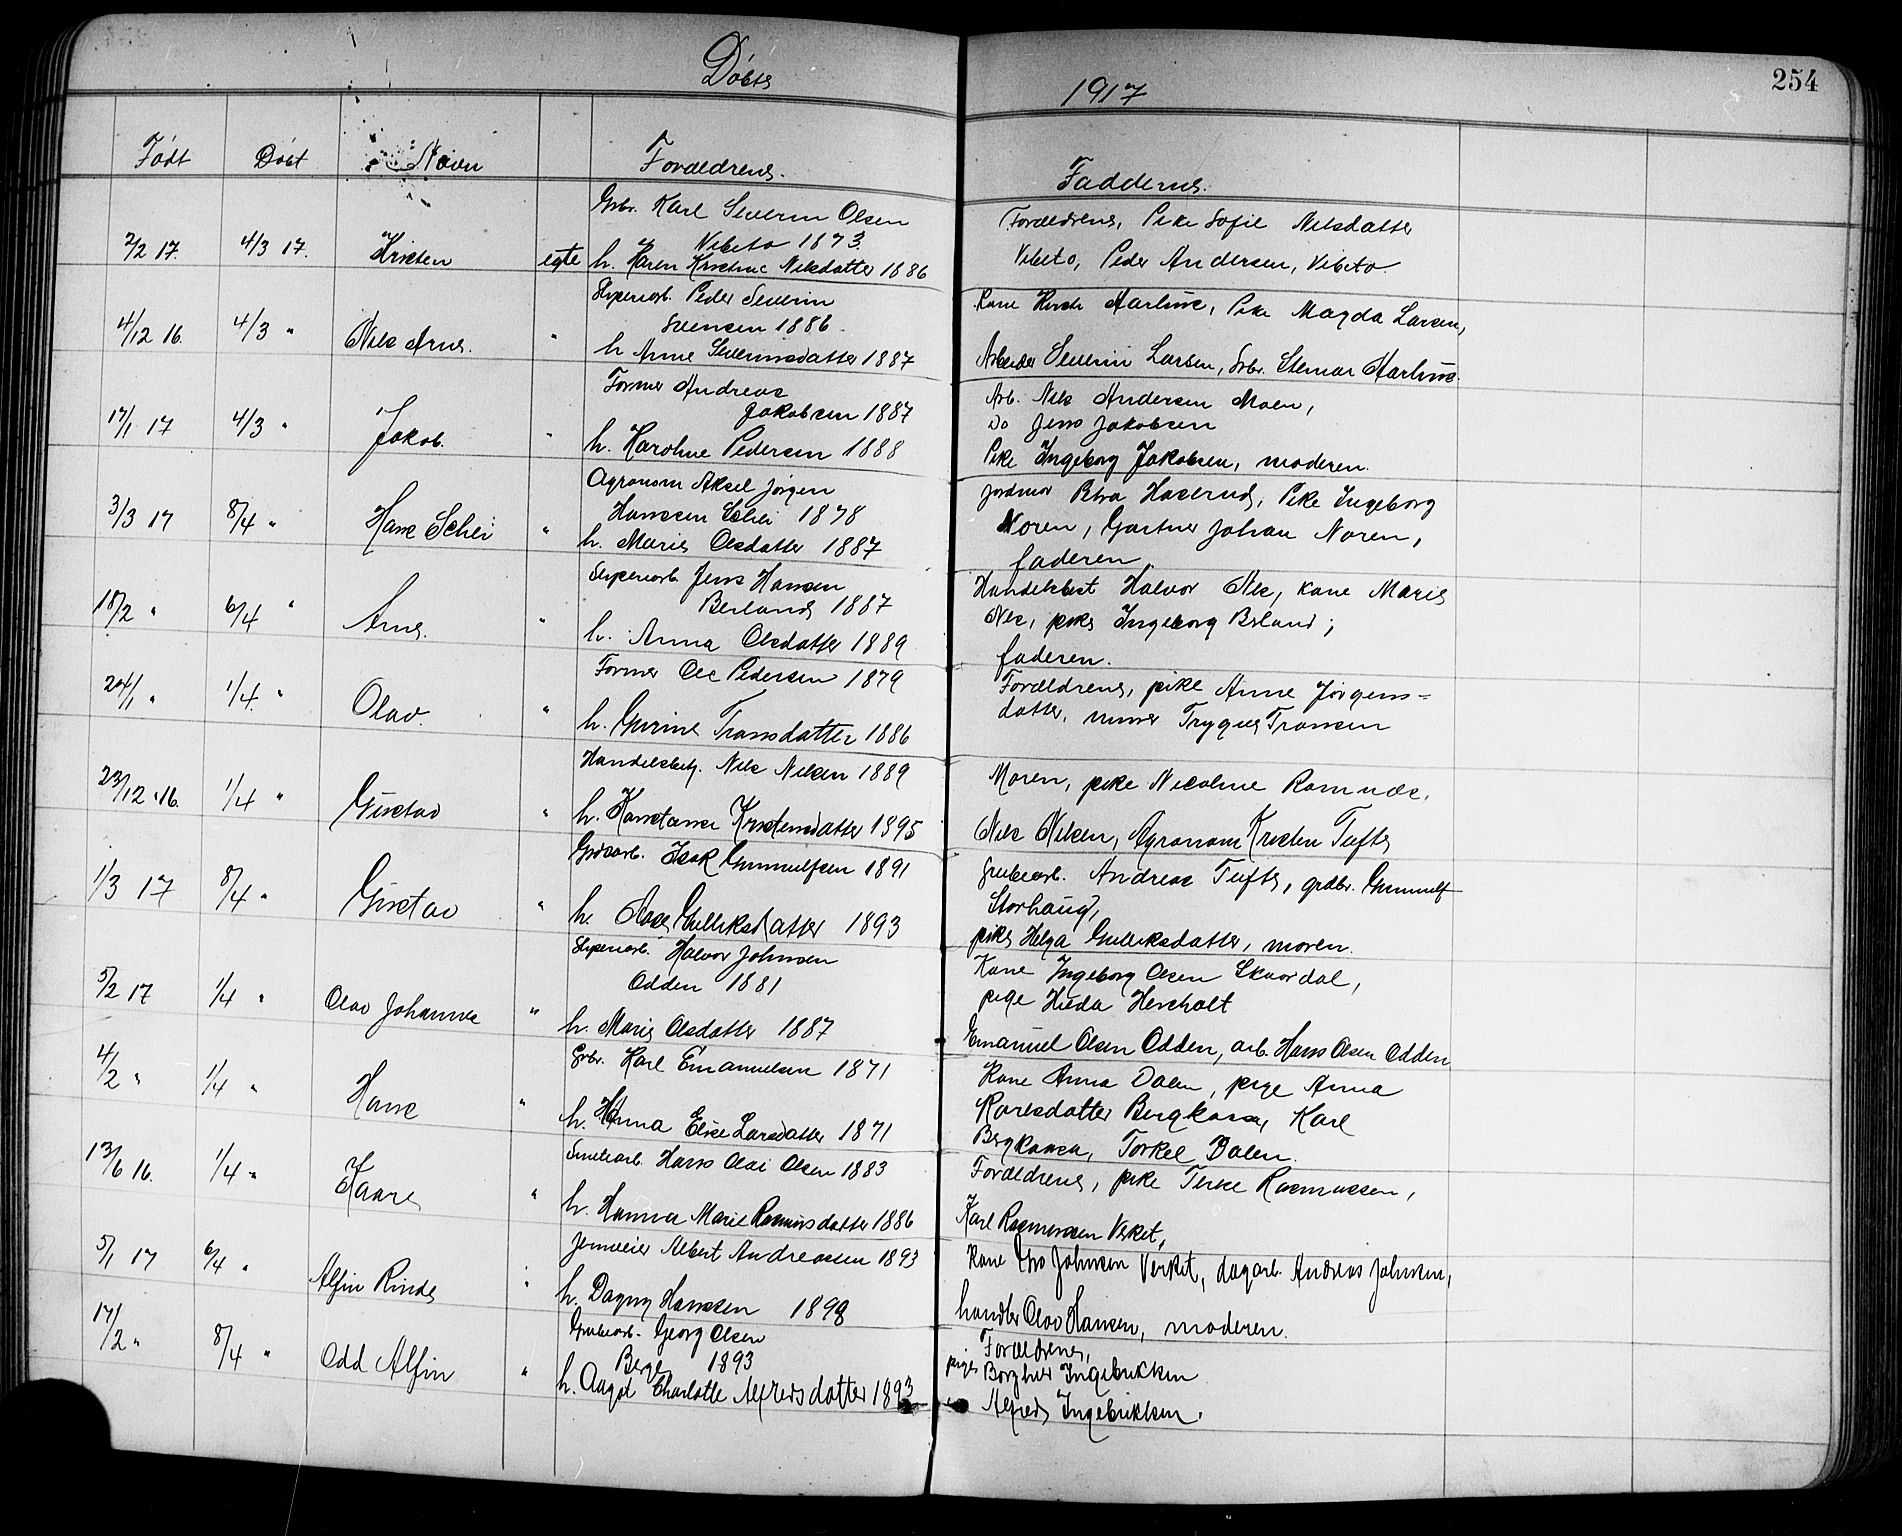 Døbte
1917
254
Født Døbt Navn Forældrene. Fadderne.
Grbr. Karl Severin Olsen
Vibeto 1873.
2/2 17. 4/3 17. Kristen egte h. Karen Kristine Nilsdatter 1886
Forældrene, Pike Sofie Nilsdatter
Vibeto, Peder Andersen, Vibeto
Sliperiarb. Peder Severin
Svensen 1886.
4/12 16. 4/3 " Nils Arne. " h. Anne Severinsdatter 1887
Kone Aarhus, Pike Magda Larsen,
Arbeider Severin Larsen, Grbr. Steinar Aarhus.
Former Andreas
Jakobsen 1887
17/1 17 4/3 " Jakob. " h. Karoline Pedersen 1888
Arb. Nils Andersen Moen,
Do Jens Jakobsen
Pike Ingeborg Jakobsen, moderen.
Agronom Aksel Jørgen
Hanssen Schei 1878
3/3 17 8/4 " Hans Schei " h. Marie Olsdatter 1887
Jordmor Petra Haserud, Pike Ingeborg
Noren, Gartner Johan Noren,
faderen.
Sliperiarb. Jens Hansen
Berland 1887
18/2 " 6/4 " Arne. " h. Anna Olsdatter 1889
Handelsbest Halvor Nes, kone Marie
Nes, pike Ingeborg Berland;
faderen.
Former Ole Pedersen 1879
24/1 " 1/4 " Olav. " h. Gurine Transdatter 1886
Forældrene, pike Anne Jørgens=
datter, Trygve Transen
Handelsbetj. Nils Nilsen 1889
23/12 16. 1/4 " Gustav " h. Konstanse Kristensdatter 1895
Moren, pike Nicoline Romnæs,
Nils Nilsen, Agronom Kristen Tufte
Isak Gunnulfsen 1891
1/3 17 8/4 " Gustav " h. Aase Gulliksdatter 1893
Grubearb. Andreas Tufte, grdbr. Gunnulf
Storhaug,
pike Helga Gulliksdatter, moren.
Sliperiarb. Halvor Johnsen
Odden 1881
5/2 17 1/4 " Olav Johannes " h. Marie Olsdatter 1887
Kone Ingeborg Olsen Skaardal,
pige Hilda Hersholt
Emanuel Olsen Odden, arb. Hans Olsen Odden
Grbr. Karl Emanuelsen 1871
4/2 " 1/4 " Hans " h. Hanna Elise Larsdatter 1871
Kone Anna Dalen, pige Anna
Karlsdatter Bergkaasa, Karl
Bergkaasa, Torkel Dalen.
Hans Olai Olsen 1883
13/6 16. 1/4 " Kaare " h. Hanna Marie Rasmusdatter 1886
Forældrene, pike Rasmussen,
Karl Rasmussen Verket,
Albert Andreassen 1893
5/1 17 6/4 " Alfin Rinde " h. Dagny Hanssen 1898
Kone Johnsen Verket, dagarb. Andreas Johnsen,
handler Olav Hansen, moderen.
Grubearb. Georg Olsen
Berge 1893
17/2 " 8/4 " Odd Alfin " h. Aagot Charlotte Alfredsdatter 1893
Forældrene,
pige Borghild Ingebrikksen
Alfred Ingebrikksen.